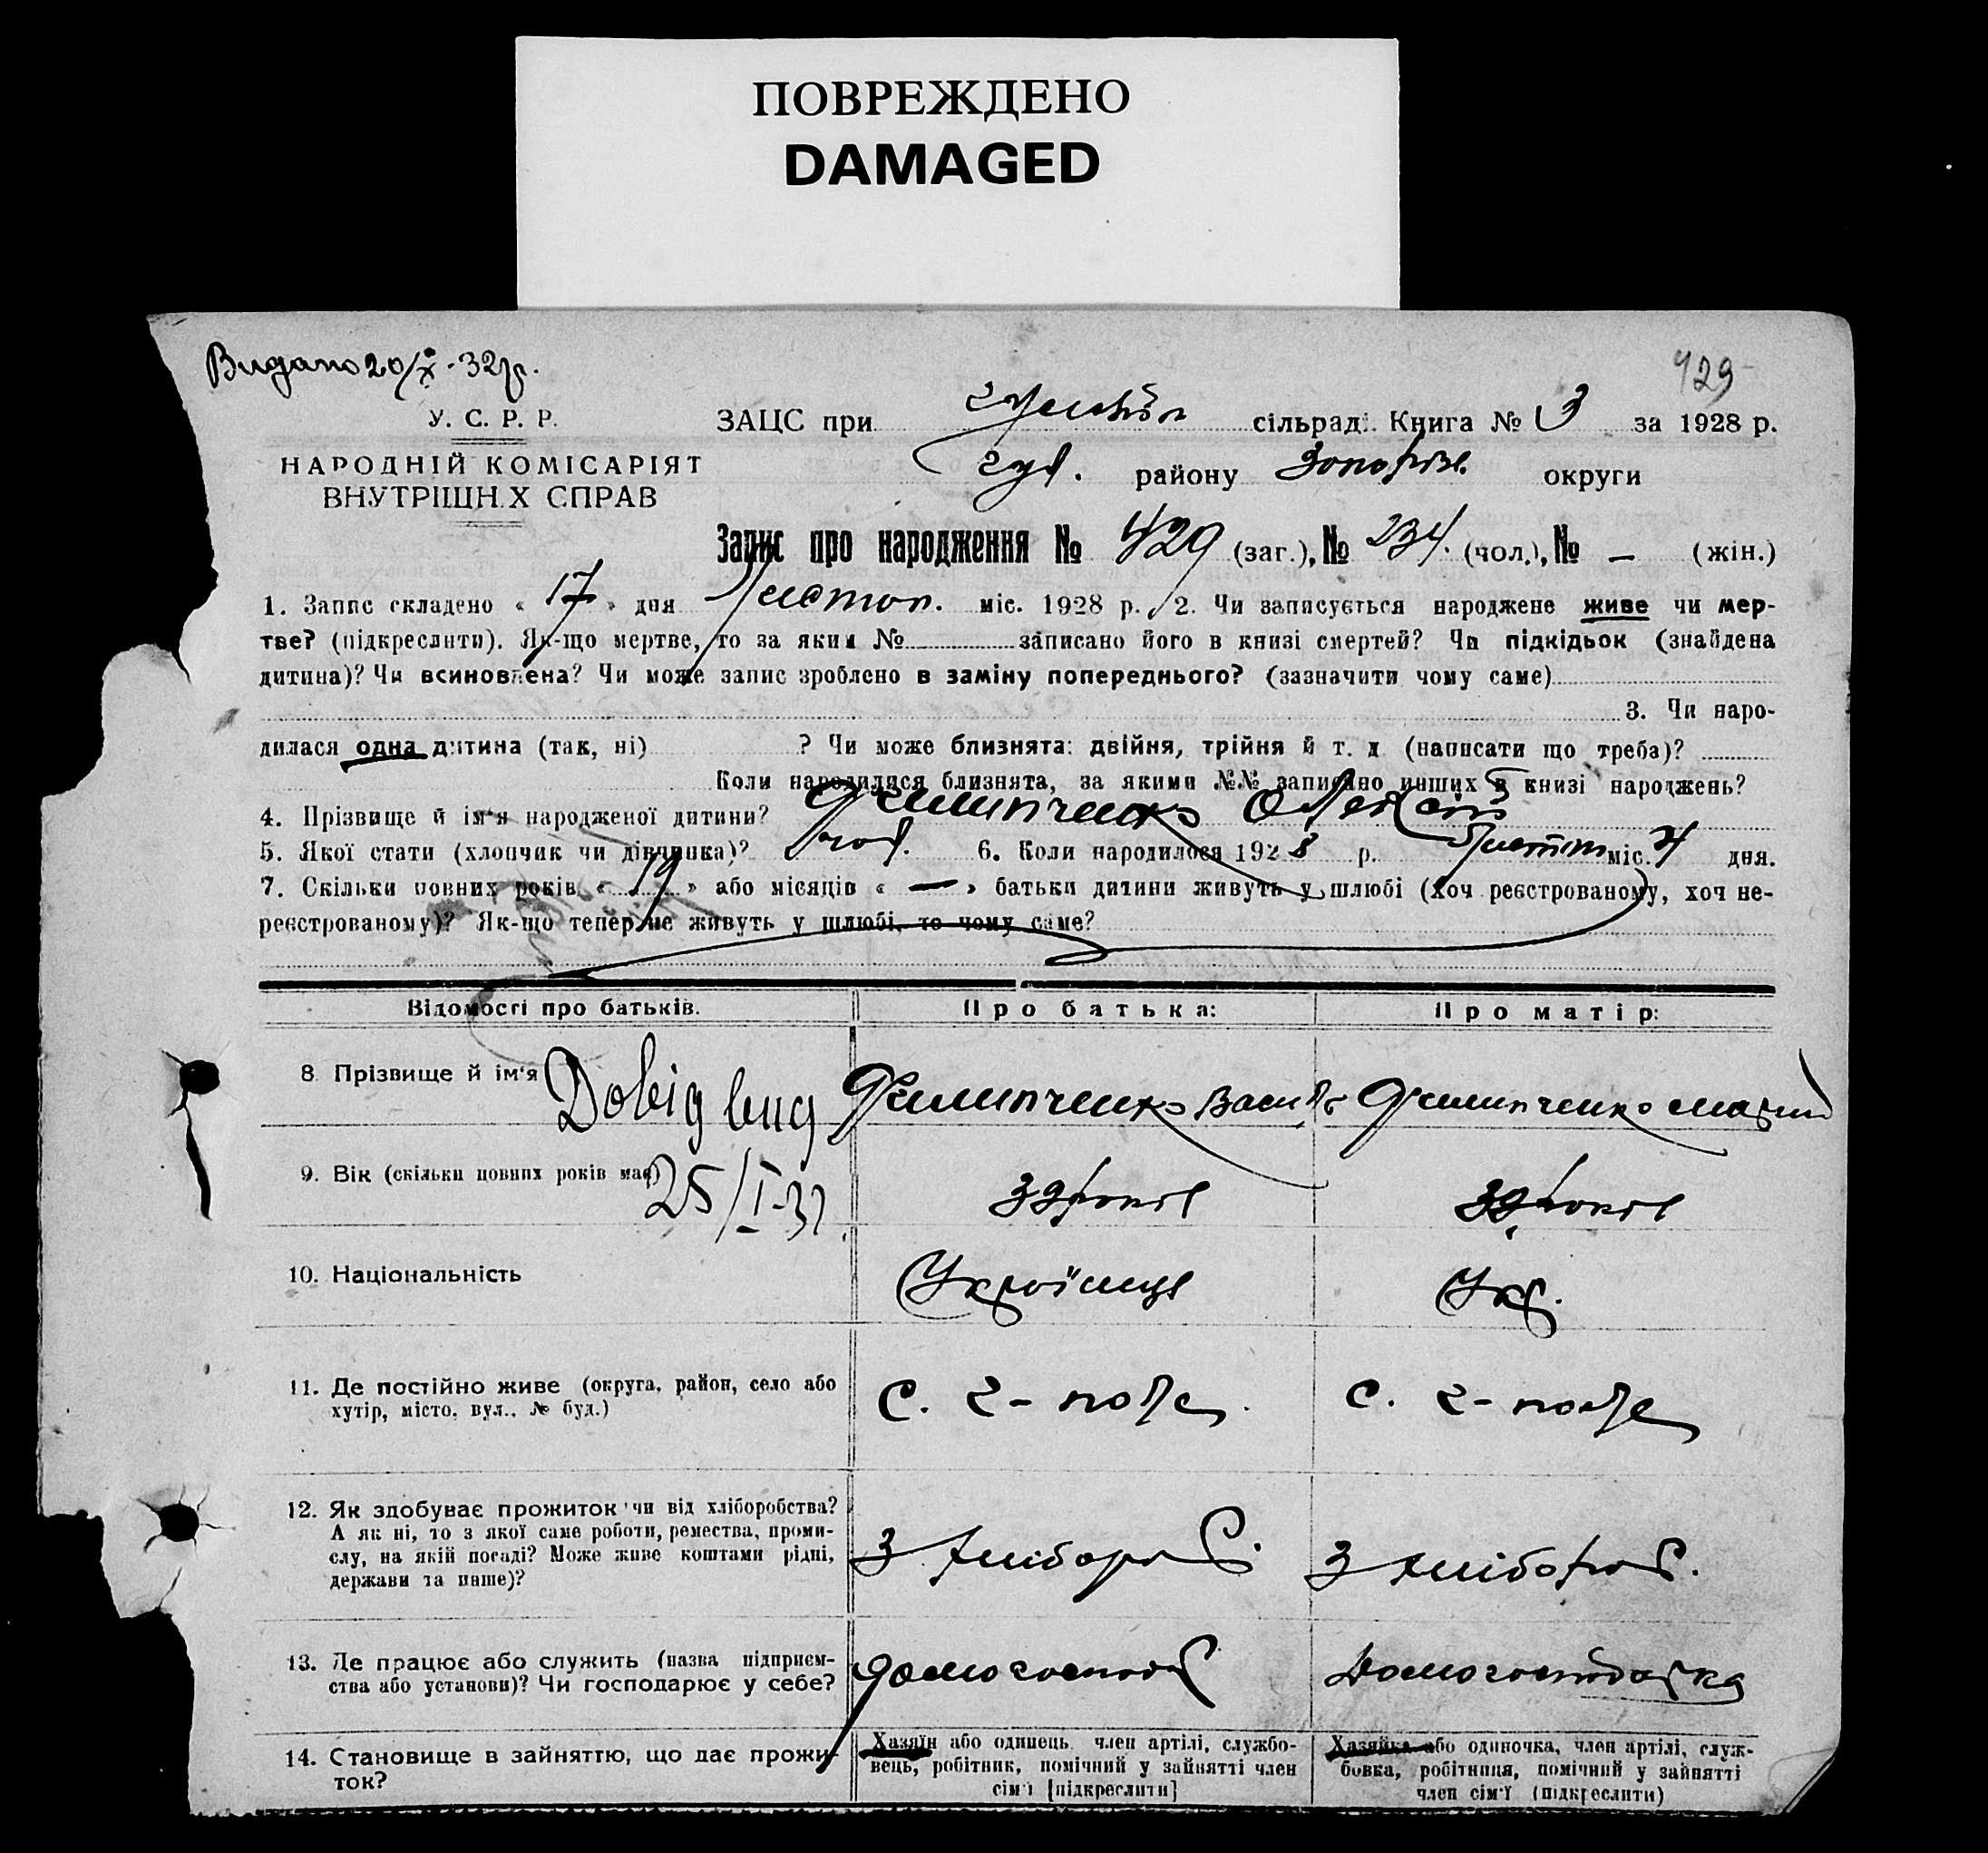 ПОВРЕЖДЕНО
DAMAGED
Видано 20/X-32р.
429
У. С. Р. Р.
ЗАЦС при сільраді. Книга № 3 за 1928 р.
НАРОДНІЙ КОМІСАРІЯТ
ВНУТРІШНІХ СПРАВ
гул. району Запоріж. округи
Запис про народження № 429 (заг.), № 234. (чол.), № — (жін.)
1. Запис складено « 17 » дня Листоп. міс. 1928 р. 2. Чи записується народжене живе чи мер-
тве? (підкреслити). Як-що мертве, то за яким № записано його в книзі смертей? Чи підкідьок (знайдена
дитина)? Чи всиновлена? Чи може запис зроблено в заміну попереднього? (зазначити чому саме)
3. Чи наро-
дилася одна дитина (так, ні) ? Чи може близнята: двійня, трійня й т. д. (написати що треба)?
Коли народилися близнята, за якими №№ записано инших в книзі народжень?
4. Прізвище й ім'я народженої дитини? Филипченко Олексій
5. Якої стати (хлопчик чи дівчинка)? чол. 6. Коли народилося 1928 р. Листоп міс. 4 дня.
7. Скільки повних років « 19 » або місяців « — » батьки дитини живуть у шлюбі (хоч реєстрованому, хоч не-
реєстрованому)? Як-що тепер не живуть у шлюбі, то чому саме?
Відомості про батьків. Про батька: Про матір:
8. Прізвище й ім'я Филипченко Василь Филипченко Мария
Довід вид
9. Вік (скільки повних років має) 39 років 39 років
25/I-32
10. Національність Українць Укр.
11. Де постійно живе (округа, район, село або
хутір, місто, вул., № буд.)
С. Г-поле С. Г-поле
12. Як здобуває прожиток чи від хліборобства?
А як ні, то з якої саме роботи, ремества, проми-
слу, на якій посаді? Може живе коштами рідні,
держави та инше)?
З хлібороб. З хлібороб.
13. Де працює або служить (назва підприєм-
ства або установи)? Чи господарює у себе?
домогоспод Домогосподарка
14. Становище в зайняттю, що дає прожи-
ток?
Хазяїн або одинець, член артілі, службо-
вець, робітник, помічний у зайнятті член
сім'ї [підкреслити]
Хазяйка або одиночка, член артілі, служ-
бовка, робітниця, помічний у зайнятті
член сім'ї (підкреслити)